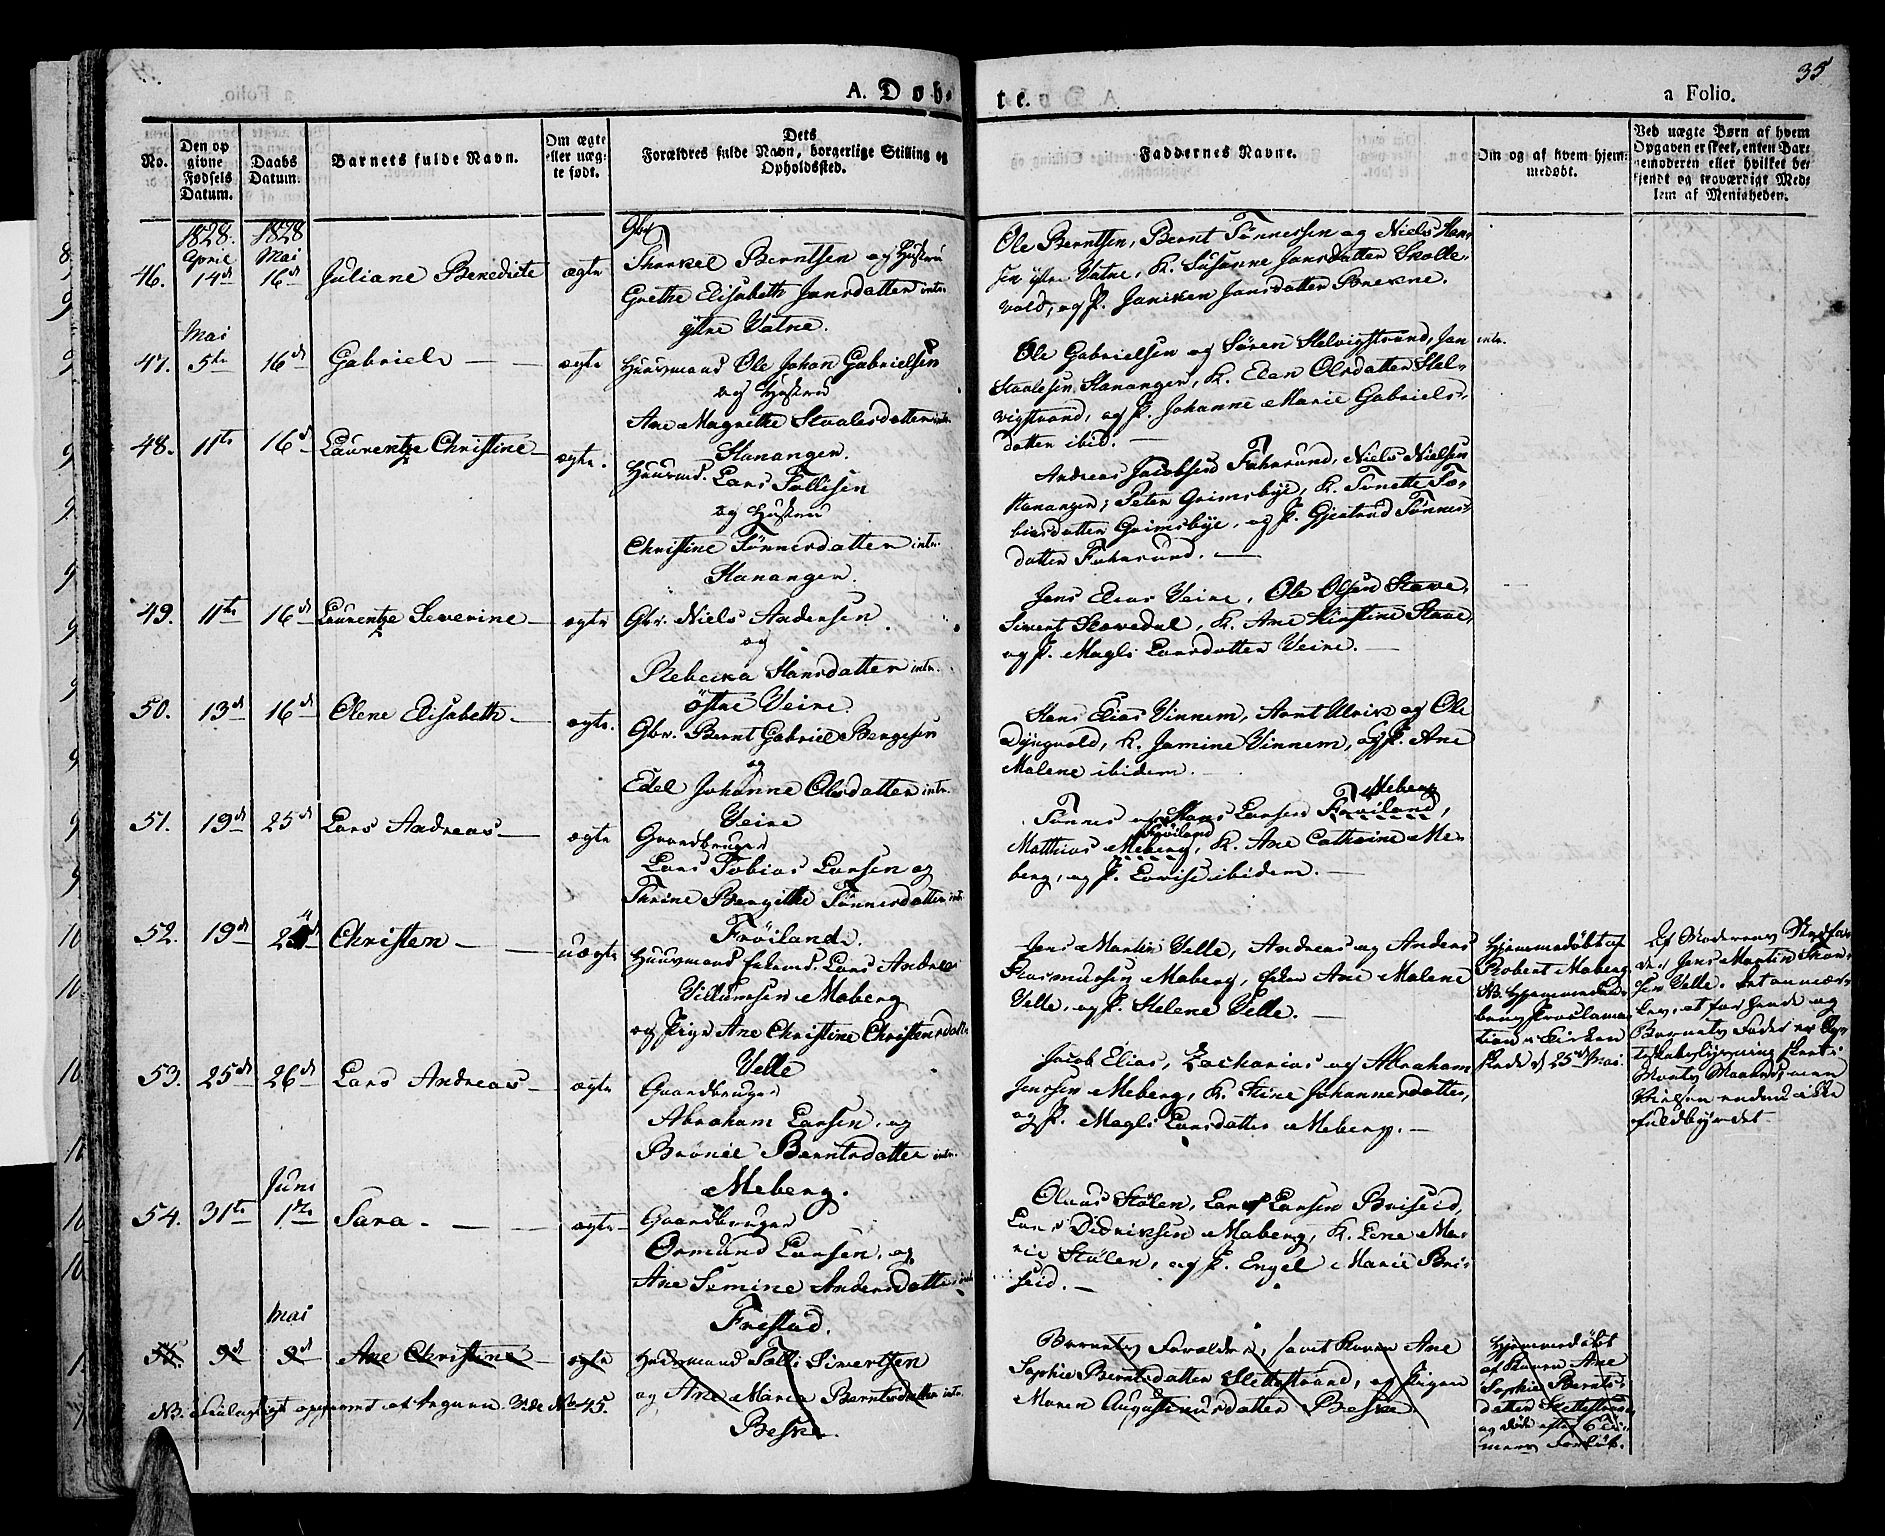 A. Døb-
te.
a Folio.
35
No.
Den op
givne
Fødsels
Datum.
Daabs
Datum.
Barnets fulde Navn.
Om ægte
eller uæg-
te født.
Dets
Forældres fulde Navn, borgerlige Stilling og
Opholdssted.
Faddernes Navne.
Om og af hvem hjem-
medøbt.
Ved uægte Børn af hvem
Opgaven er skeet, enten Bar-
nemoderen eller hvilket be-
kjendt og troværdigt Med-
lem af Menigheden.
1828. 1828
April Mai
46. 14de 16de Juliane Benedicte ægte
Gbr.
Thorkel Berntsen og Hustru
Grethe Elisabeth Jansdatter intr.
ytre Vatne.
Ole Berntsen, Bernt Tønnessen og Niels Han-
sen ytre Vatne, K. Susanne Jansdatter Skolle-
vold, og P. Janiken Jansdatter Brekne.
Mai
47. 5te 16de Gabriel ægte
Huusmand Ole Johan Gabrielsen
og Hustru
Ane Magrethe Staalesdatter intr.
Hanangen.
Ole Gabrielsen og Sören Helvigstrand, Jan intr.
Staalesen Hanangen, K. Elen Olsdatter Hel-
vigstrand, og P. Johanne Marie Gabriels-
datter ibid.
48. 11te 16de Laurentze Christine ægte.
Huusmd. Lars Tollisen
og Hustru
Christine Tønnesdatter intr.
Hanangen.
Andreas Jacobsen Fahrsund, Niels Nielsen
Hanangen, Peter Grimsbye, K. Tonette To-
biasdatter Grimsbye, og P. Gjertrud Tønnes-
datter Fahrsund.
49. 11te 16de Laurentze Severine ægte
Gbr. Niels Andersen
og
Rebecka Hansdatter intr.
östre Veire.
Jens Elias Veire, Ole Olsen Stave,
Sivert Skovedal, K. Ane Kirstine Stave,
og P. Magli Larsdatter Veire.
50. 13de 16de Olene Elisabeth ægte.
Gbr. Bernt Gabriel Bergesen
og
Edel Johanne Olsdatter intr.
Veire
Hans Elias Vinnem, Arnt Ulrik og Ole
Dyngvold, K. Jamine Vinnem, og P. Ane
Malene ibidem.
51. 19de 25de Lars Andreas ægte
Gaardbruger
Lars Tobias Larsen og
Thrine Bergitte Tønnesdatter intr.
Fröiland.
Meberg
Tønnes og Hans Larsen Fröiland,
Fröiland
Matthias Meberg, K. Ane Cathrine Me-
berg, og P. Lovise ibidem.
52. 19de Christen uægte
Huusmand Lars Andreas
Villumsen Meberg
og Pige Ane Christine Christensdatter
Velle
Jens Martin Velle, Andreas og Anders
Rasmussen Meberg, Ane Malene
Velle, og P. Helene Velle.
Hjemmedøbt af
Robert Meberg.
NB.
Proclama-
tion i Kirken
skede d. 25de Mai.
Af Moderens
Jens Martin
Velle.
og
Barnets Fader er
men
endnu ikke
fuldbyrdet.
53. 25de 26de Lars Andreas ægte
Gaardbruger
Abraham Larsen og
Brönie Berntsdatter intr.
Meberg.
Jacob Elias, Zacharias og Abraham
Jenssen Meberg, K. Stine Johannesdatter,
og P. Magli Larsdatter Meberg.
Juni
54. 31te 1ste Sara ægte
Gaardbruger
Ormund Larsen og
Ane Semine Andersdatter intr.
Frestad.
Olaus Stølen, Lars Larsen Briseid,
Lars Didriksen Meberg, K. Lene Ma-
rie Stølen, og P. Engel Marie Bri-
seid.
Mai
55. 9de 9de Ane Christine ægte
Huusmand Tolli Sivertsen
og Ane Marie Berntsdatter intr.
Beske.
Barnets Forældre, samt Konen Ane
Sophie Berntsdatter Slettestrand, og Pigen
Maren Augustinusdatter Beske.
Hjemmedøbt
af Konen Ane
Sophie Bernts-
datter Slettestrand
og døde efter 6 Ti-
mers Forløb.
NB. Vide No 45.